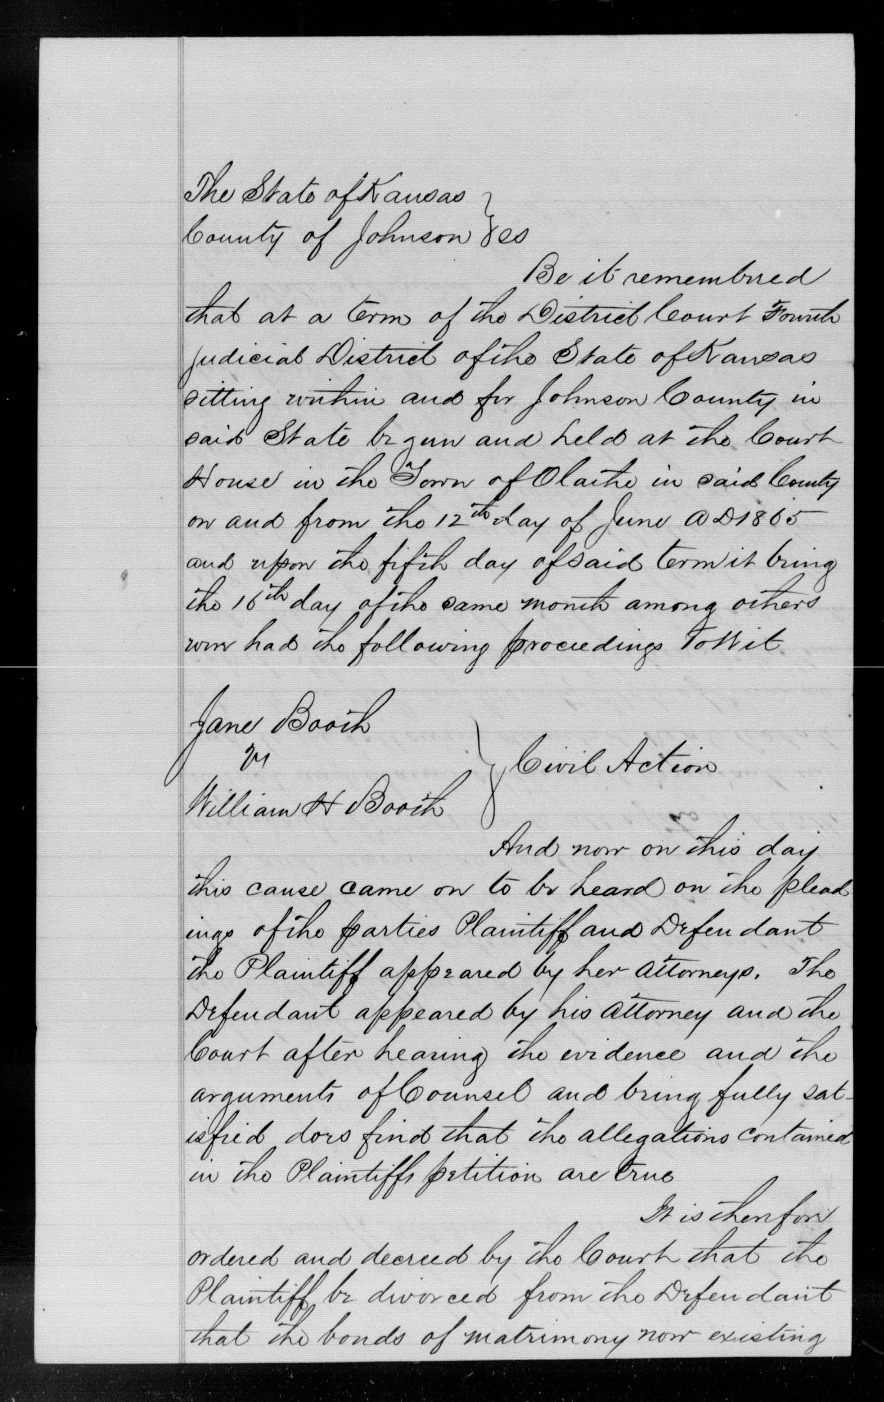 The State of Kansas
County of Johnson } ss
Be it remembered
that at a term of the District Court Fourth
Judicial District of the State of Kansas
sitting within and for Johnson County in
said State begun and held at the Court
House in the Town of Olathe in said County
on and from the 12th day of June AD 1865
and upon the fifth day of said term it being
the 16th day of the same month among others
were had the following proceedings To Wit
Jane Booth
vs
} Civil Action
William H Booth
And now on this day
this cause came on to be heard on the plead
ings of the parties Plaintiff and Defendant
the Plaintiff appeared by her attorneys. The
Defendant appeared by his attorney and the
Court after hearing the evidence and the
arguments of Counsel and being fully sat-
isfied does find that the allegations contained
in the Plaintiffs petition are true
It is therefore
ordered and decreed by the Court that the
Plaintiff be divorced from the Defendant
that the bonds of matrimony now existing